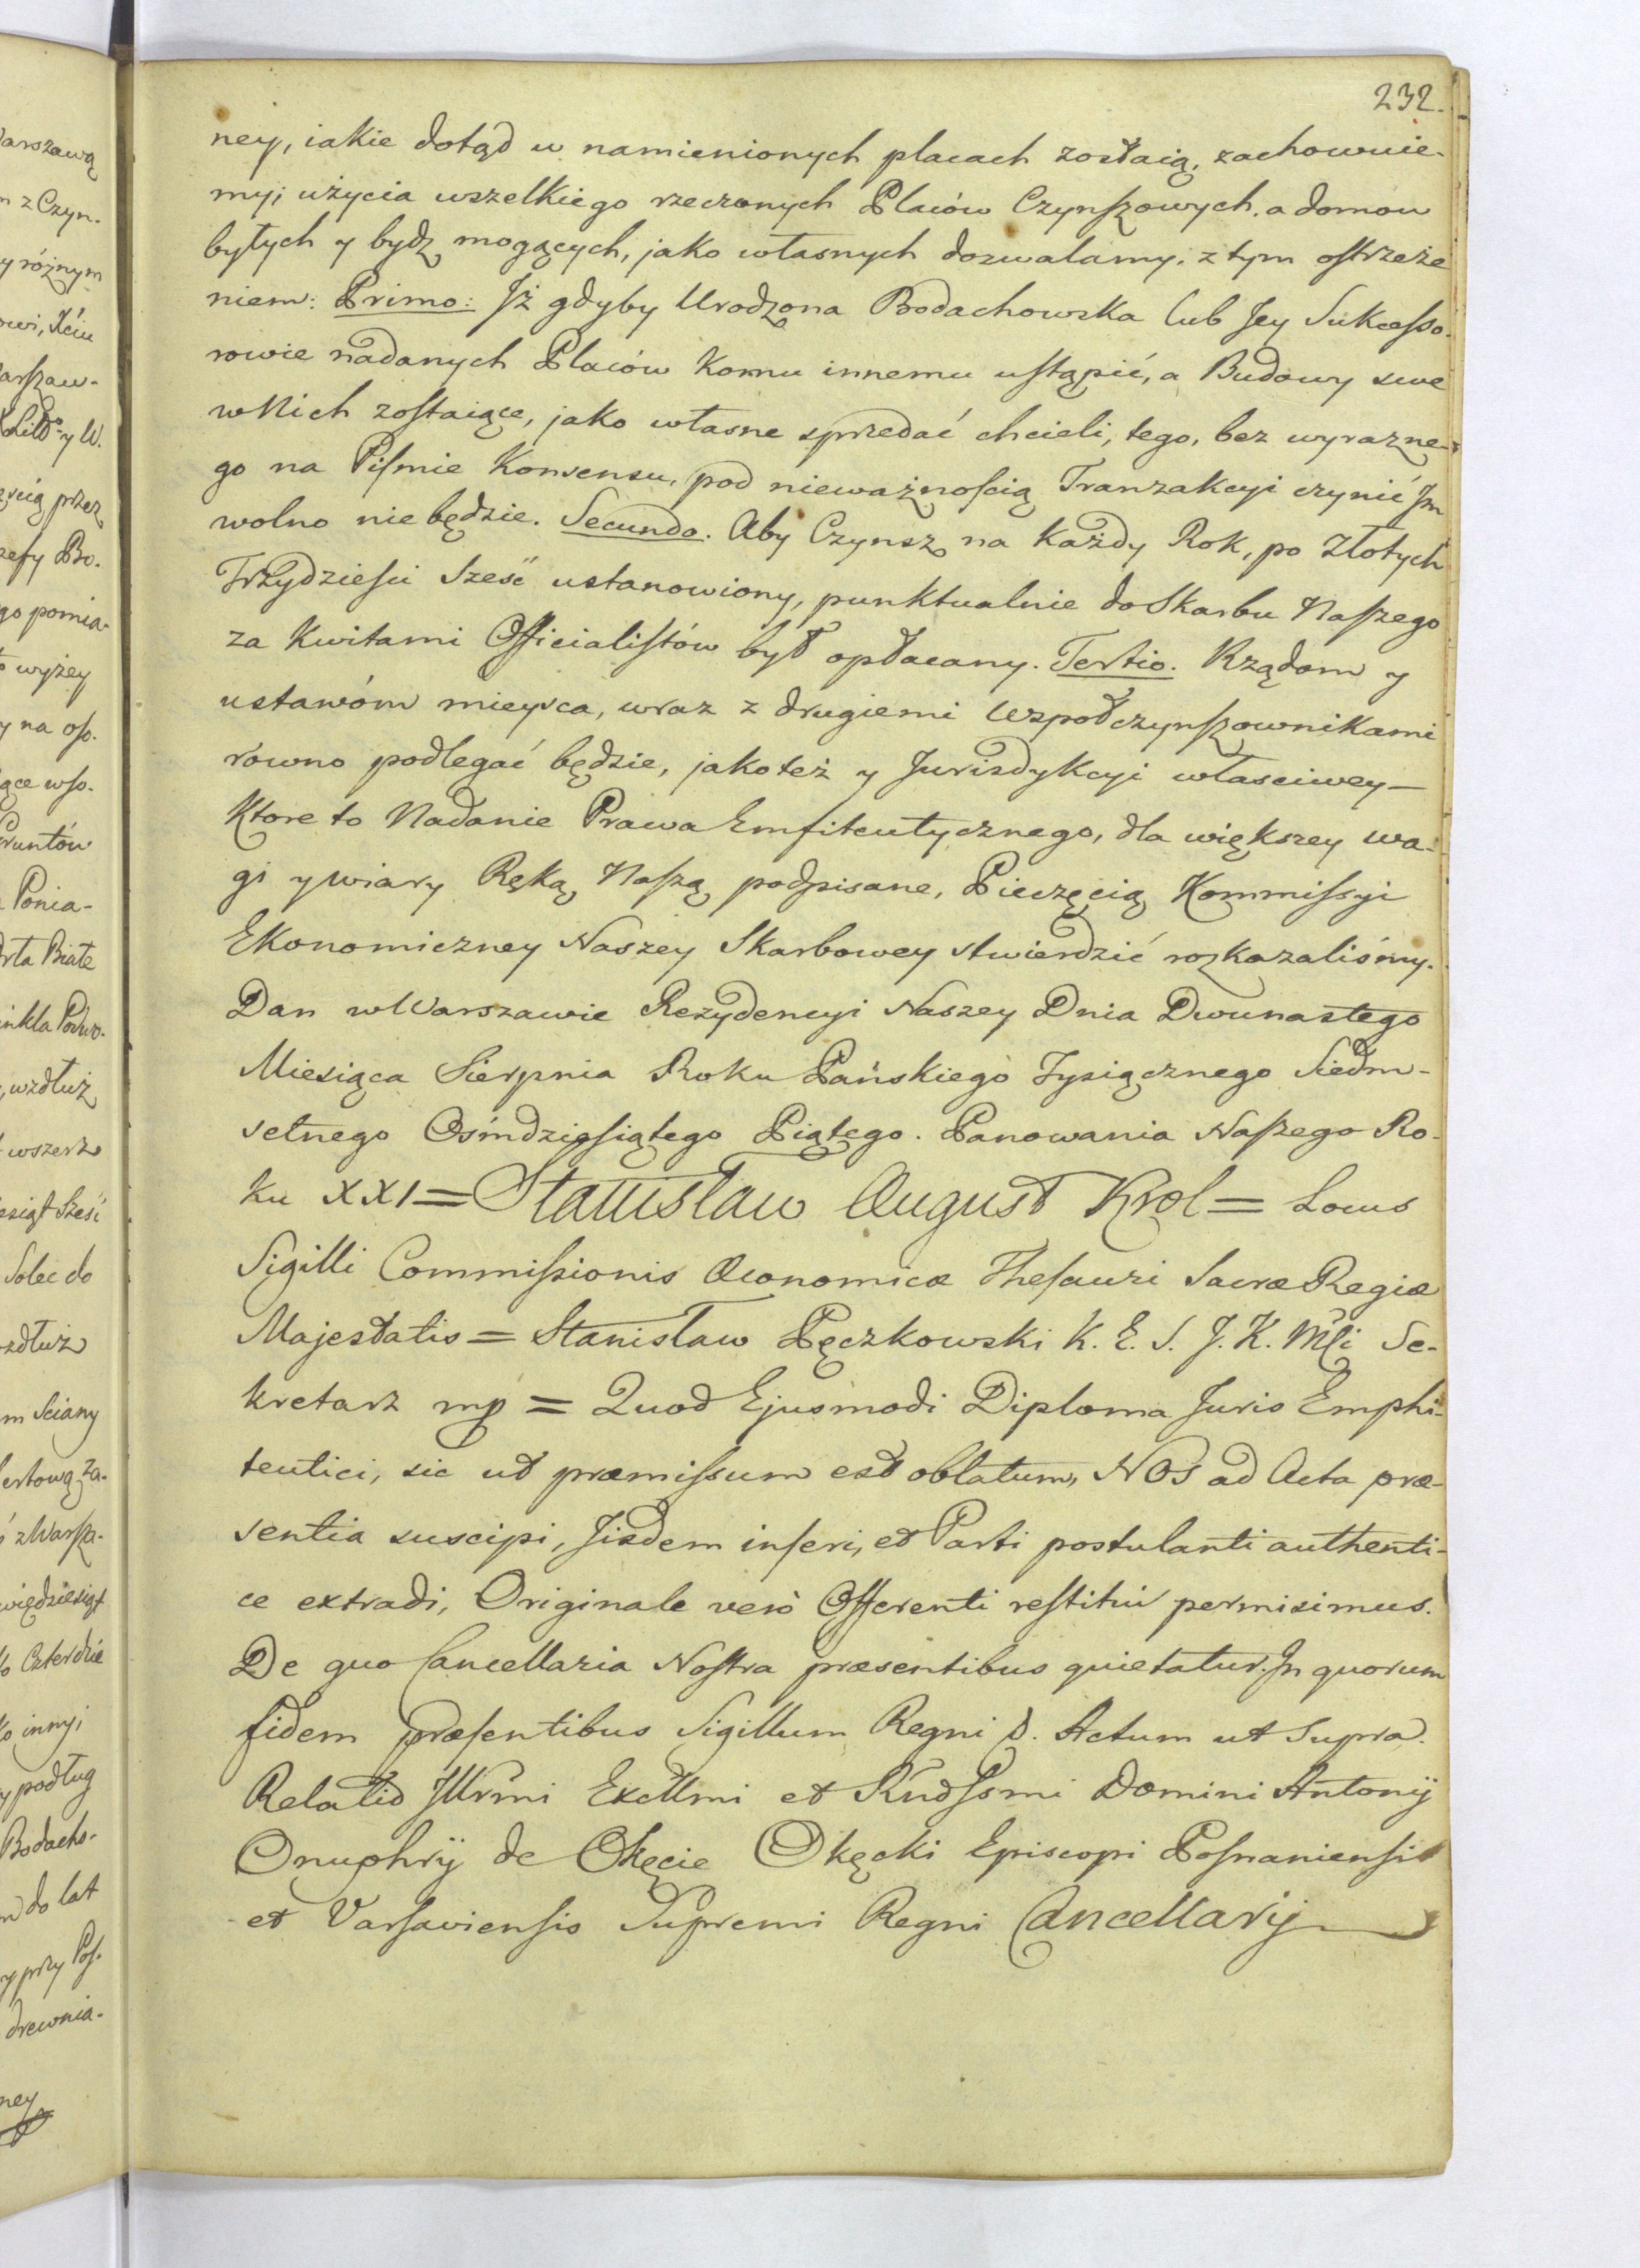 232.
ney, iakie dotąd w namienionych placach zostaią, zachowuie-
my; użycia wszelkiego rzeczonych Placów Czynszowych, a domow
byłych y bydz mogących, jako własnych dozwalamy, z tym ostrzeże
niem: Primo: Jż gdyby Urodzona Bodachowska lub Jey Sukcesso-
rowie nadanych Placów komu innemu ustąpić, a Budowy swe
w Nich zostaiące, jako własne sprzedać chcieli, tego, bez wyrazne-
go na Piśmie Konsensu, pod nieważnością Tranzakcyi czynić Jm
wolno nie będzie. Secundo. Aby Czynsz na każdy Rok, po Złotych
Trzydzieści Sześć ustanowiony, punktualnie do Skarbu Naszego
za Kwitami Officialistów był opłacany. Tertio. Rządom y
ustawóm mieysca, wraz z drugiemi Wspołczynszownikami
rowno podlegać będzie, jako też y Jurisdykcyi własciwey —
Ktore to Nadanie Prawa Emfiteutycznego, dla większey wa-
gi y wiary Ręką Naszą podpisane, Pieczęcią Kommissyi
Ekonomiczney Naszey Skarbowey stwierdzić rozkazaliśmy.
Dan w Warszawie Rezydencyi Naszey Dnia Dwunastego
Miesiąca Sierpnia Roku Pańskiego Tysiącznego Siedm-
setnego Ośmdziesiątego Piątego. Panowania Naszego Ro-
ku XXI = Stanisław August Krol = Locus
Sigilli Commissionis Œconomicæ Thesauri Sacræ Regiæ
Majestatis = Stanisław Pęczkowski K. E. S. J. K. Mći Se-
kretarz mp = Quod Ejusmodi Diploma Juris Emphi-
teutici, sic ut præmissum est oblatum, NOS ad Acta præ-
sentia suscipi, Jisdem inseri, et Parti postulanti authenti-
ce extradi, Originale verò Offerenti restitui permisimus.
De quo Cancellaria Nostra præsentibus quietatur. Jn quorum
fidem præsentibus Sigillum Regni . Actum ut Supra.
Relatio Jllrmi Excllmi et Rndssmi Domini Antonij
Onuphrij de Okęcie Okęcki Episcopi Posnaniensis
et Varsaviensis Supremi Regni Cancellarij